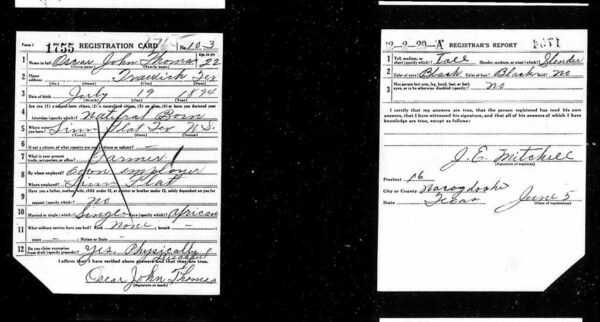 Form 1
1755 REGISTRATION CARD
No. 103
1 Name in full Oscar John Thomas 22
(Given name) (Family name)
2 Home address Trawick Tex
(No.) (Street) (City) (State)
3 Date of birth July 19
(Month) (Day) (Year)
4 Are you (1) a natural-born citizen, (2) a naturalized citizen, (3) an alien, (4) or have you declared your
intention (specify which)? Natural Born
5 Where were you born? Linn Flat Tex U.S.
(Town) (State) (Nation)
6 If not a citizen, of what country are you a citizen or subject?
7 What is your present trade, occupation, or office? Farmer
8 By whom employed? employer
Where employed? Linn Flat
9 Have you a father, mother, wife, child under 12, or a sister or brother under 12, solely dependent on you for
support (specify which)? No
10 Married or single (which)? Single Race (specify which)? African
11 What military service have you had? Rank None branch
years Nation or State
12 Do you claim exemption from draft (specify grounds)? Yes. Physically
I affirm that I have verified above answers and that they are true.
Oscar John Thomas
(Signature or mark)
REGISTRAR'S REPORT
1 Tall, medium, or short (specify which)? Tall Slender, medium, or stout (which)? Slender
2 Color of eyes? Black Color of hair? Black Bald? No
3 Has person lost arm, leg, hand, foot, or both eyes, or is he otherwise disabled (specify)? No
I certify that my answers are true, that the person registered has read his own
answers, that I have witnessed his signature, and that all of his answers of which I have
knowledge are true, except as follows:
J. E. Mitchell
(Signature of registrar)
Precinct 16
City or County Nacogdoches
State Texas
June 5
(Date of registration)